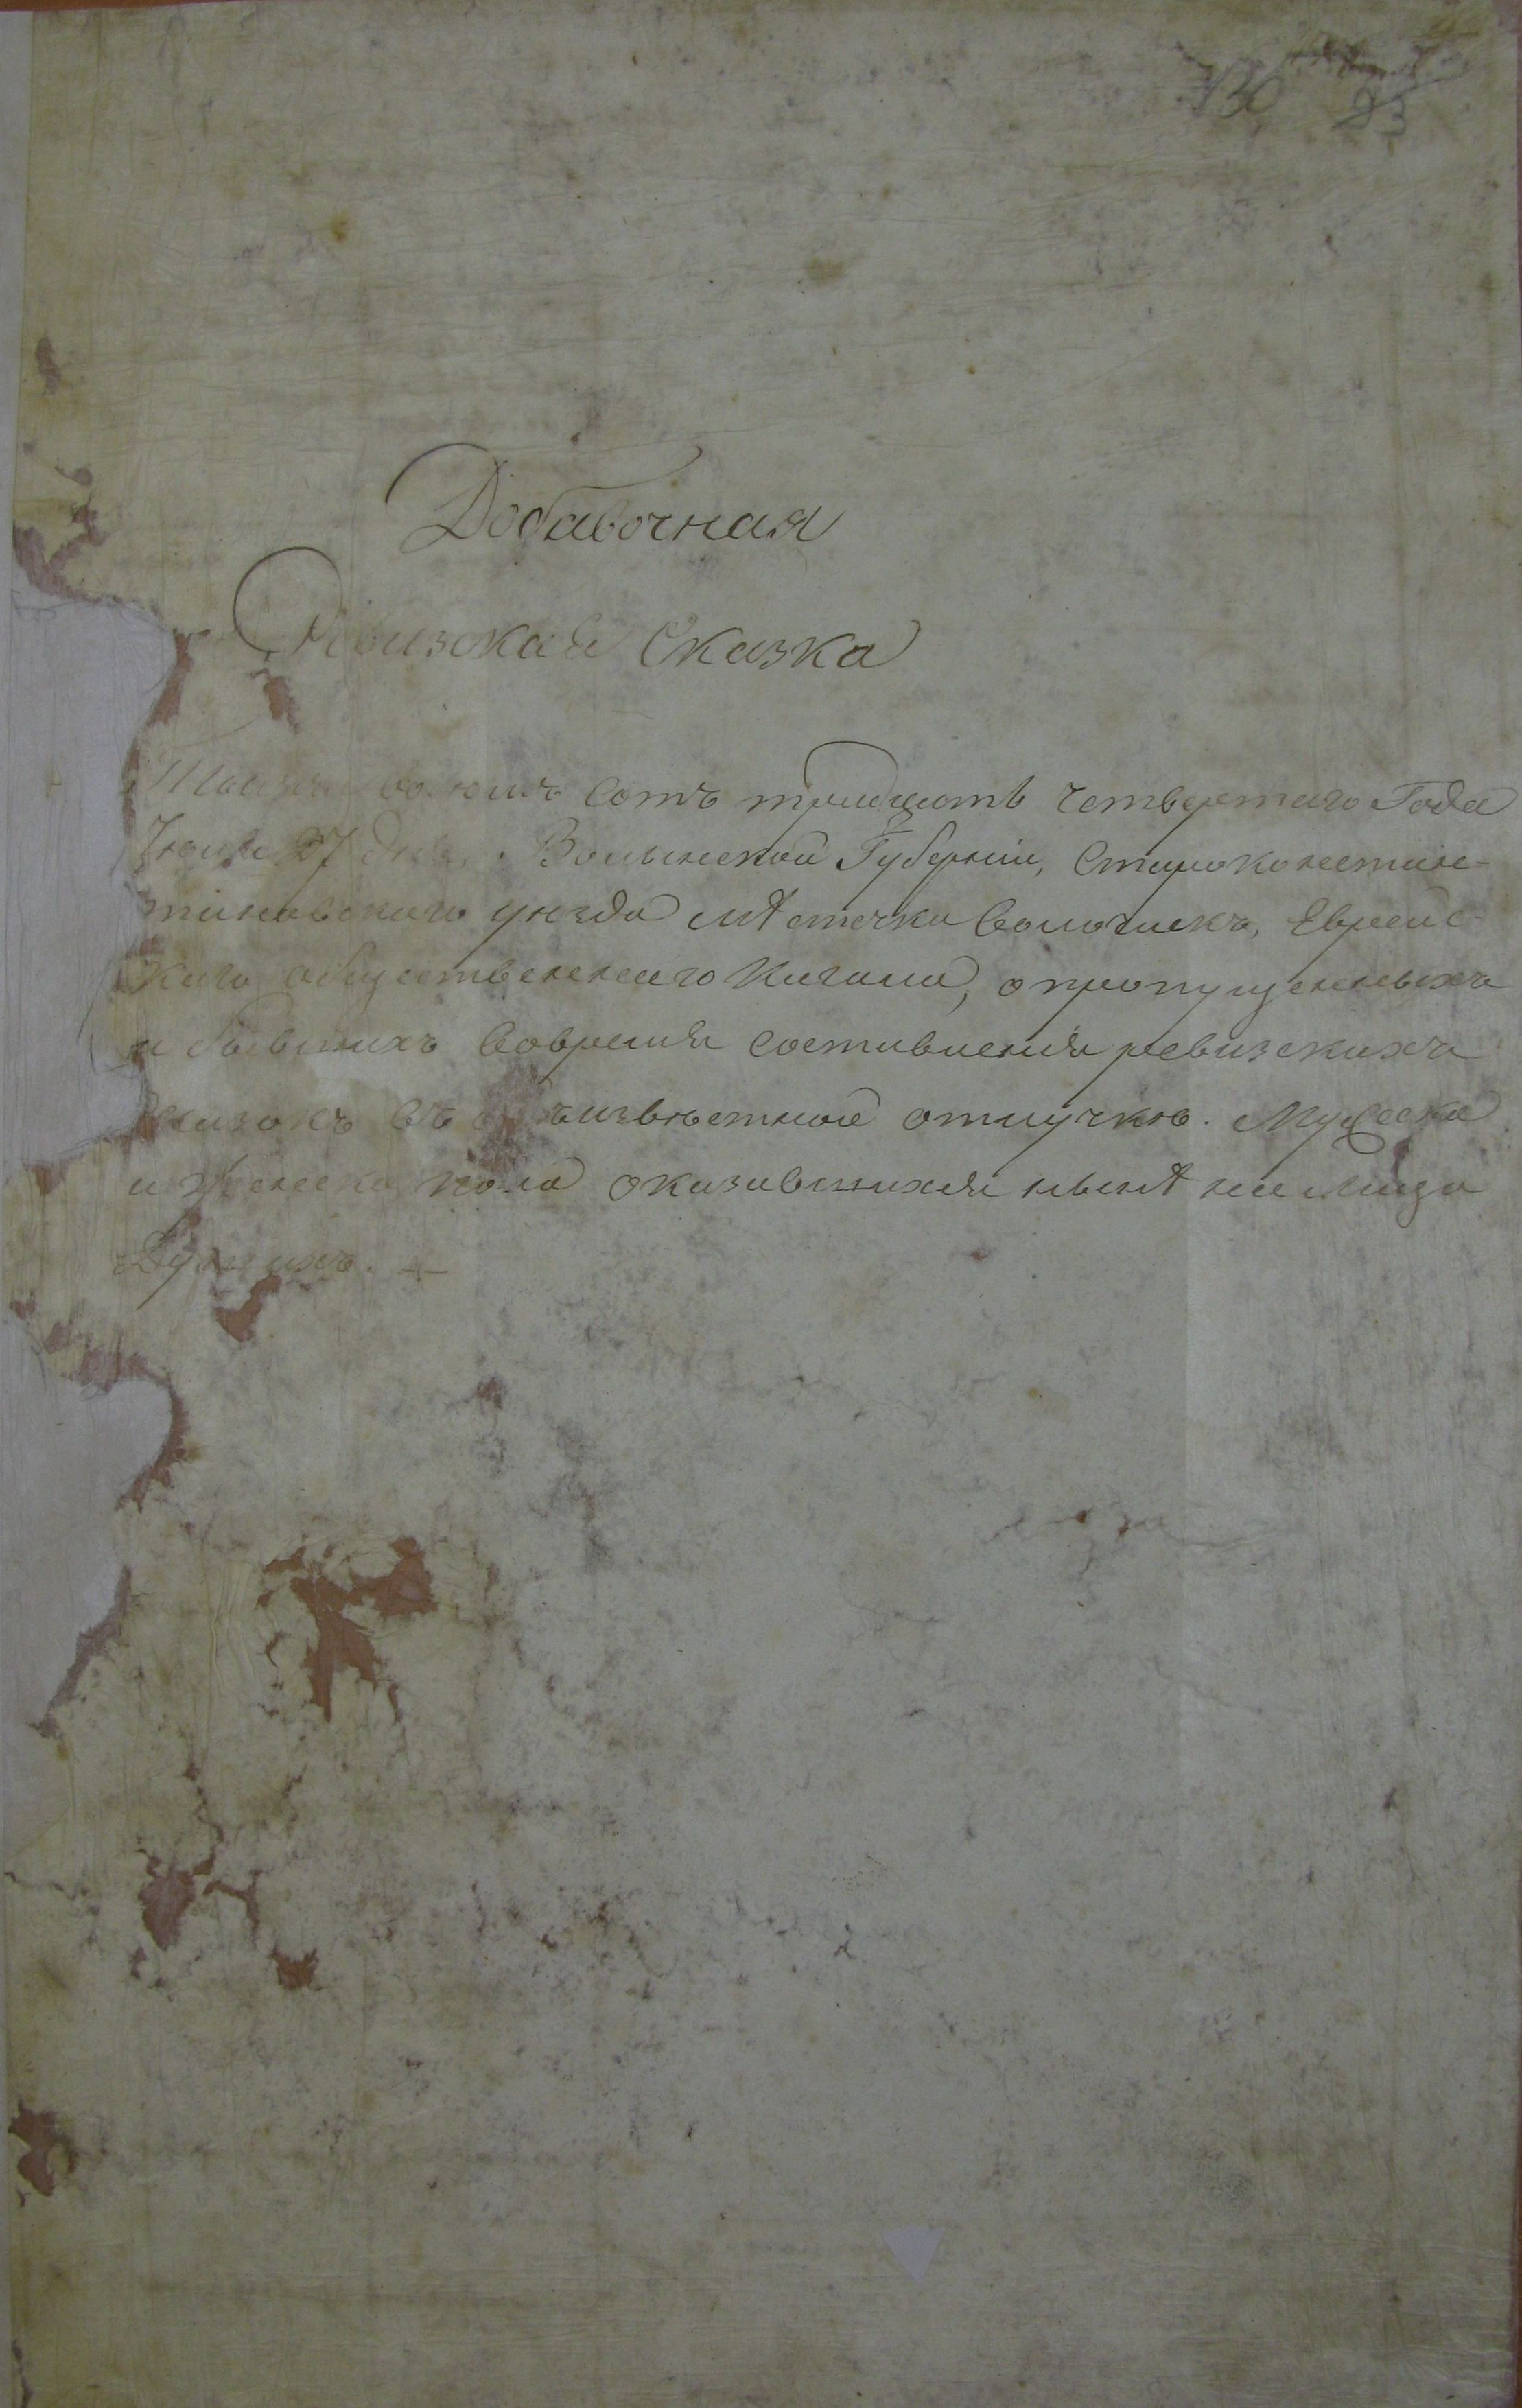 130 83
Добавочная
Ревизская Сказка
Тысяча восемь сотъ тридцать четвертаго Года
27 дня, Волынской Губерніи, Староконстан-
тиновского уезда мѣстечка Волочискъ, Еврейс-
каго общественнаго Кагала, о пропущенныхъ
и бывшихъ вовремя составленія ревизскихъ
сказокъ въ отлучкѣ. Мужеска
и женска пола оказавшихся нынѣ на лицо
Душахъ. —